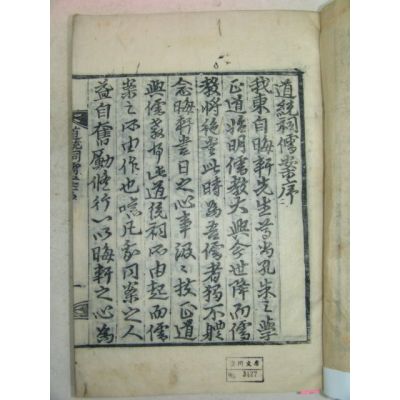 道統祠儒案序
我東自晦軒先生首尚孔朱之學
正道復明儒教大興今世降而儒
教將絶當此時為吾儒者獨不軆
念晦軒當日之心事汲汲扶正道
興儒教乎此道統祠所由起而儒
案之所由作也嗚凡我同案之人
益自奮勵修行以晦軒之心為
道統祠儒案序
一
3427